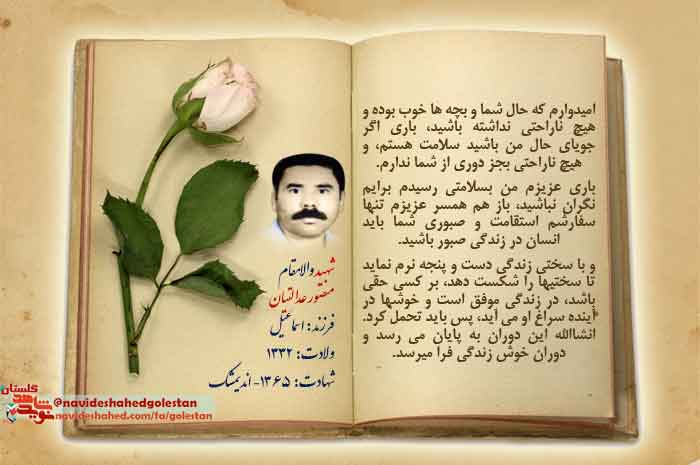 امیدوارم که حال شما و بچه ها خوب بوده و
هیچ ناراحتی نداشته باشید، باری اگر
جویای حال من باشید سلامت هستم، و
هیچ ناراحتی بجز دوری از شما ندارم.
باری عزیزم من بسلامتی رسیدم برایم
نگران نباشید، باز هم همسر عزیزم تنها
سفارشم استقامت و صبوری شما باید
انسان در زندگی صبور باشید.
و با سختی زندگی دست و پنجه نرم نماید
تا سختیها را شکست دهد، بر کسی حقی
باشد، در زندگی موفق است و خوشها در
آینده سراغ او می آید، پس باید تحمل کرد.
انشاالله این دوران به پایان می رسد و
دوران خوش زندگی فرا میرسد.
شهید والامقام
منصور عدالتیان
فرزند: اسماعیل
ولادت: ۱۳۳۲
شهادت: ۱۳۶۵- اندیمشک
نوید شاهد گلستان
@navideshahedgolestan
navideshahed.com/fa/golestan